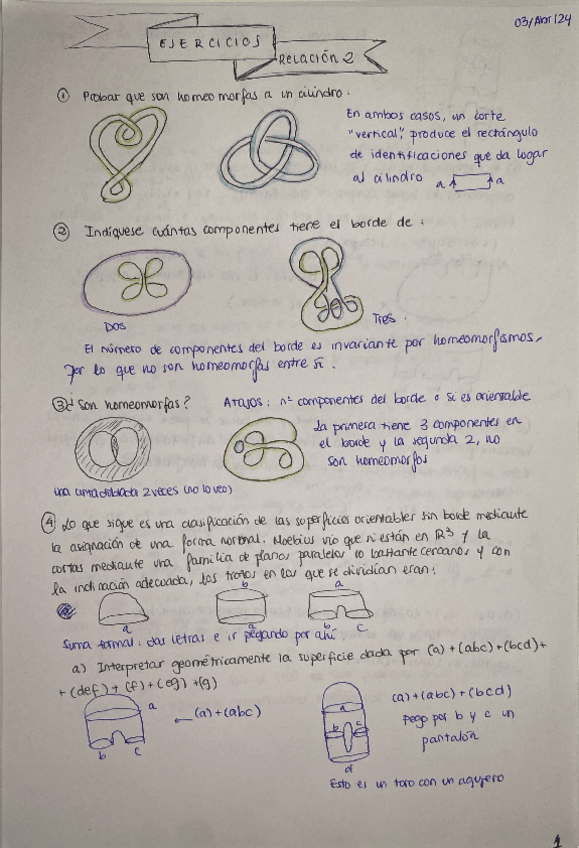 03/Abr/24
EJERCICIOS
RELACIÓN 2
① Probar que son homeomorfas a un cilindro.
En ambos casos, un corte
"vertical", produce el rectángulo
de identificaciones que da lugar
al cilindro a a
② Indíquese cuántas componentes tiene el borde de:
Dos
Tres.
El número de componentes del borde es invariante por homeomorfismos,
por lo que no son homeomorfas entre sí.
③ ¿Son homeomorfas?
ATAJOS: nº componentes del borde o si es orientable
La primera tiene 3 componentes en
el borde y la segunda 2, no
son homeomorfos
una doblada 2 veces (no lo veo)
④ Lo que sigue es una clasificación de las superficies orientables sin borde mediante
la asignación de una forma normal. Moebius vio que si están en R³ y la
cortas mediante una familia de planos paralelos lo bastante cercanos y con
la inclinación adecuada, los trozos en los que se dividían eran:
a
b
a
a
b c
Suma formal: das letras e ir pegando por ahí
a) Interpretar geométricamente la superficie dada por (a) + (abc) + (bcd) +
+ (def) + (f) + (eg) + (g)
a
← (a) + (abc)
b c
a
b c
d
(a) + (abc) + (bcd)
pego por b y c un
pantalón
Esto es un toro con un agujero
1